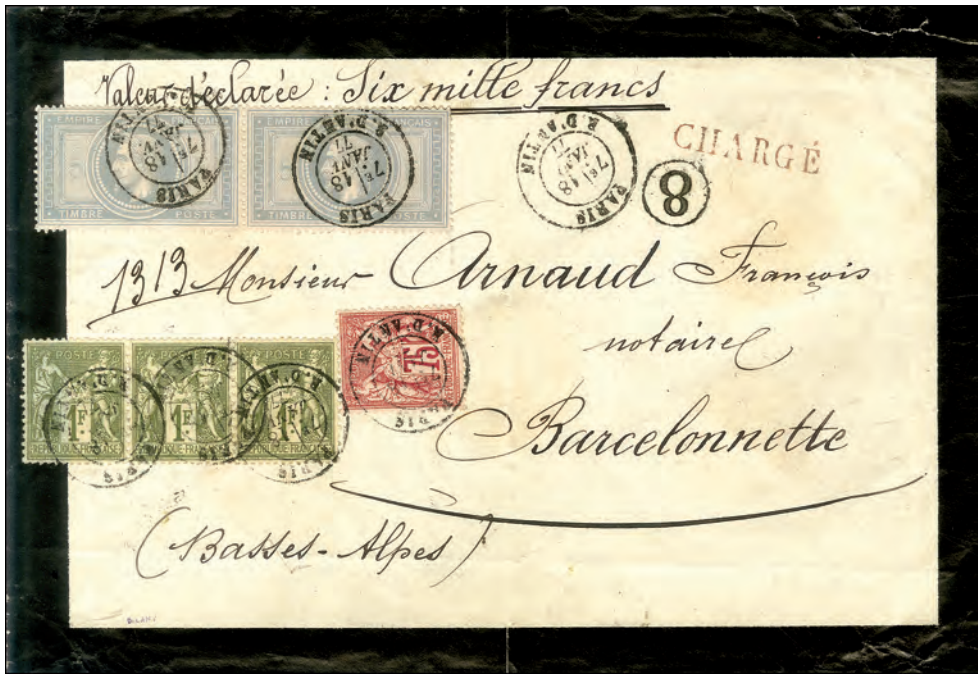 Valeur déclarée : Six mille francs
EMPIRE FRANÇAIS
TIMBRE POSTE
EMPIRE FRANÇAIS
TIMBRE POSTE
PARIS R. D'ANTIN
7E 18 JANV. 77
PARIS R. D'ANTIN
7E 18 JANV. 77
PARIS R. D'ANTIN
7E 18 JANV. 77
CHARGÉ
8
1313 Monsieur Arnaud François
notaire
Barcelonnette
(Basses-Alpes)
POSTE
1F
REPUBLIQUE FRANÇAISE
POSTE
1F
REPUBLIQUE FRANÇAISE
1F
REPUBLIQUE FRANÇAISE
75
PARIS R. D'ANTIN